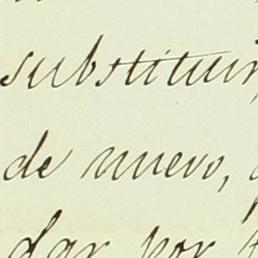 substituir
de nuevo,
dar por